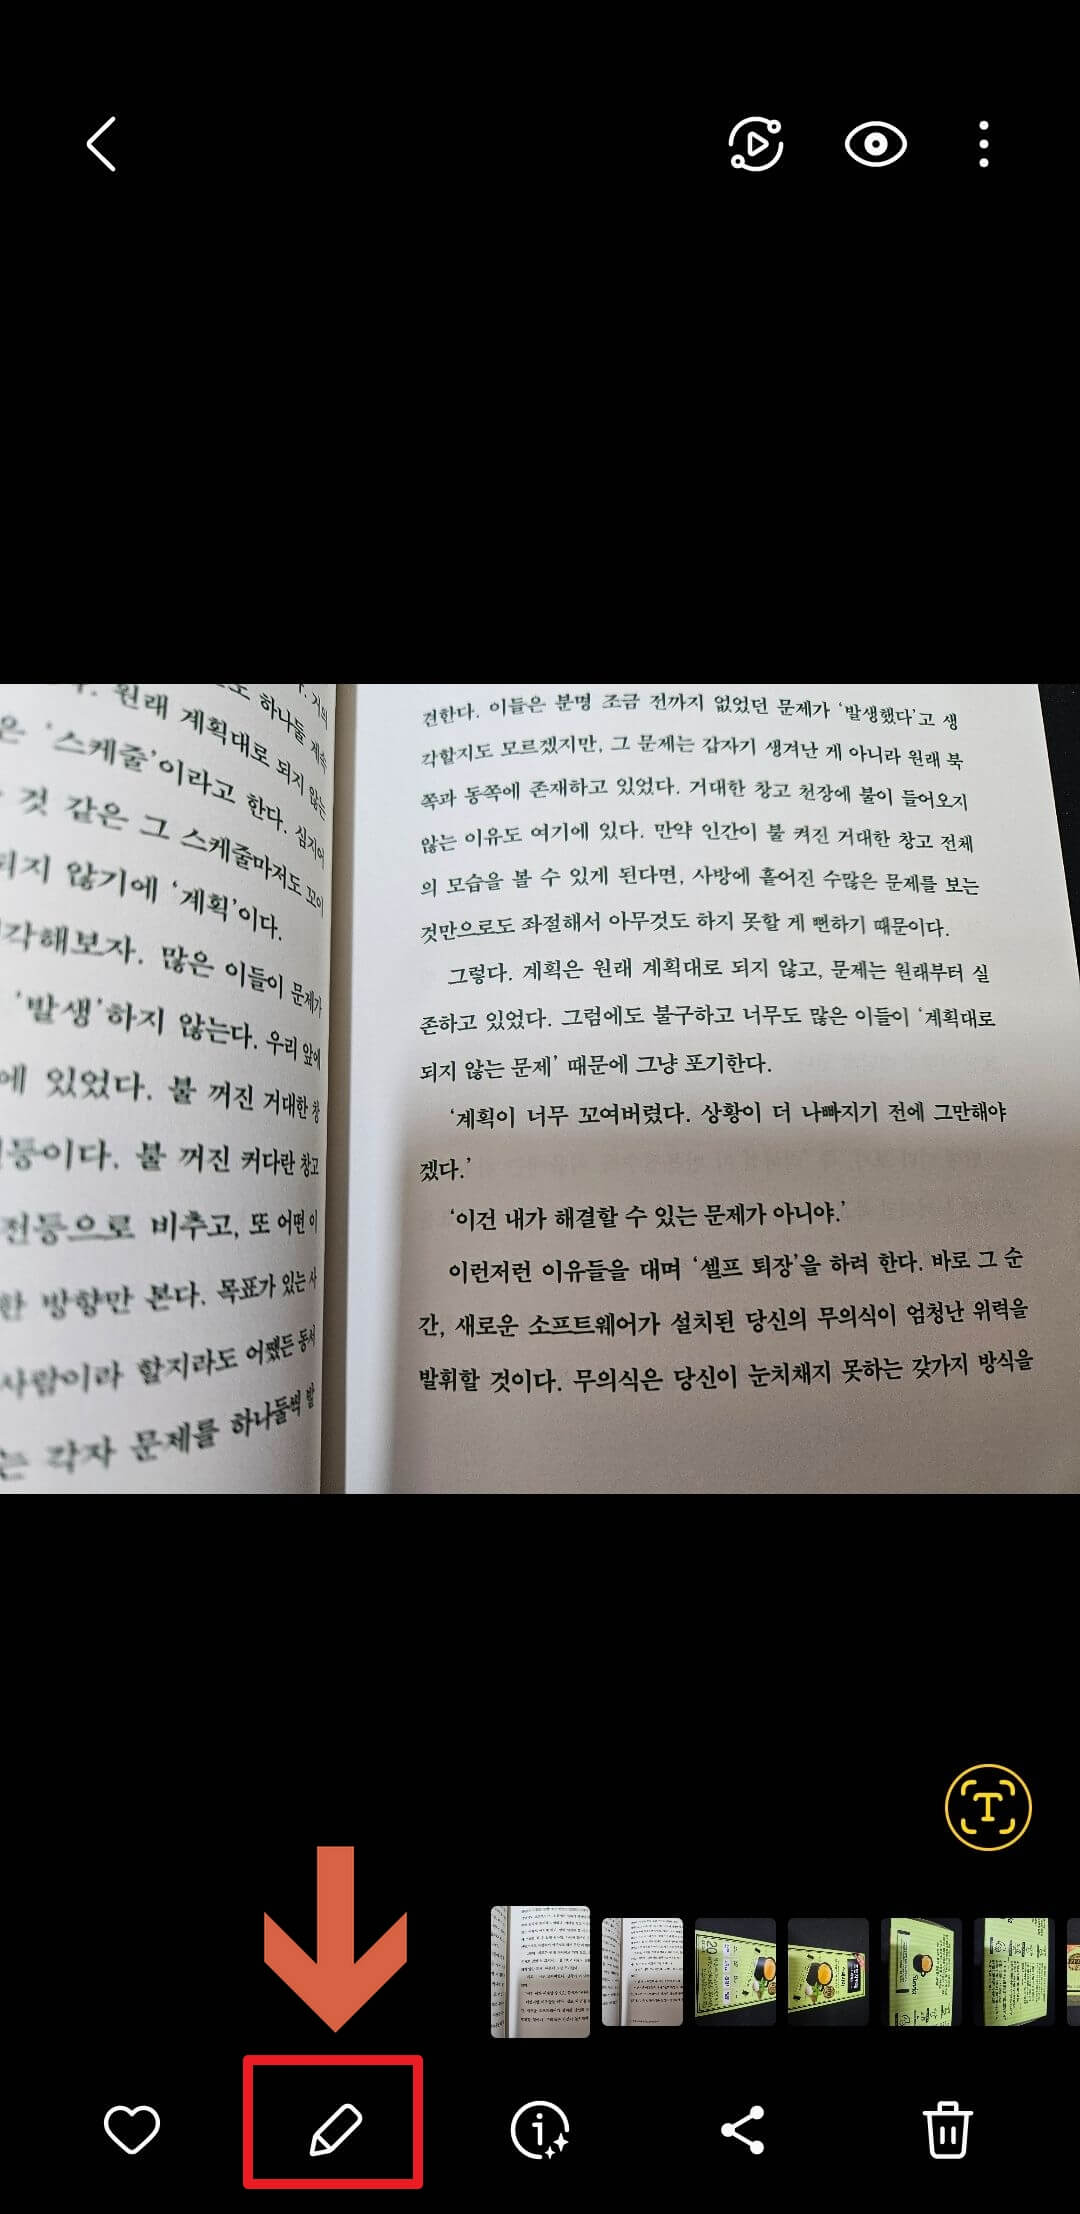 원래 계획대로 되지 않는
은 ‘스케줄’이라고 한다. 심지어
것 같은 그 스케줄마저도 꼬이
되지 않기에 ‘계획’이다.
각해보자. 많은 이들이 문제가
‘발생’하지 않는다. 우리 앞에
에 있었다. 불 꺼진 거대한 창
등이다. 불 꺼진 커다란 창고
전등으로 비추고, 또 어떤 이
한 방향만 본다. 목표가 있는 사
사람이라 할지라도 어쨌든 동서
는 각자 문제를 하나둘씩 발
견한다. 이들은 분명 조금 전까지 없었던 문제가 ‘발생했다’고 생
각할지도 모르겠지만, 그 문제는 갑자기 생겨난 게 아니라 원래 북
쪽과 동쪽에 존재하고 있었다. 거대한 창고 천장에 불이 들어오지
않는 이유도 여기에 있다. 만약 인간이 불 켜진 거대한 창고 전체
의 모습을 볼 수 있게 된다면, 사방에 흩어진 수많은 문제를 보는
것만으로도 좌절해서 아무것도 하지 못할 게 뻔하기 때문이다.
그렇다. 계획은 원래 계획대로 되지 않고, 문제는 원래부터 실
존하고 있었다. 그럼에도 불구하고 너무도 많은 이들이 ‘계획대로
되지 않는 문제’ 때문에 그냥 포기한다.
‘계획이 너무 꼬여버렸다. 상황이 더 나빠지기 전에 그만해야
겠다.’
‘이건 내가 해결할 수 있는 문제가 아니야.’
이런저런 이유들을 대며 ‘셀프 퇴장’을 하려 한다. 바로 그 순
간, 새로운 소프트웨어가 설치된 당신의 무의식이 엄청난 위력을
발휘할 것이다. 무의식은 당신이 눈치채지 못하는 갖가지 방식을
T